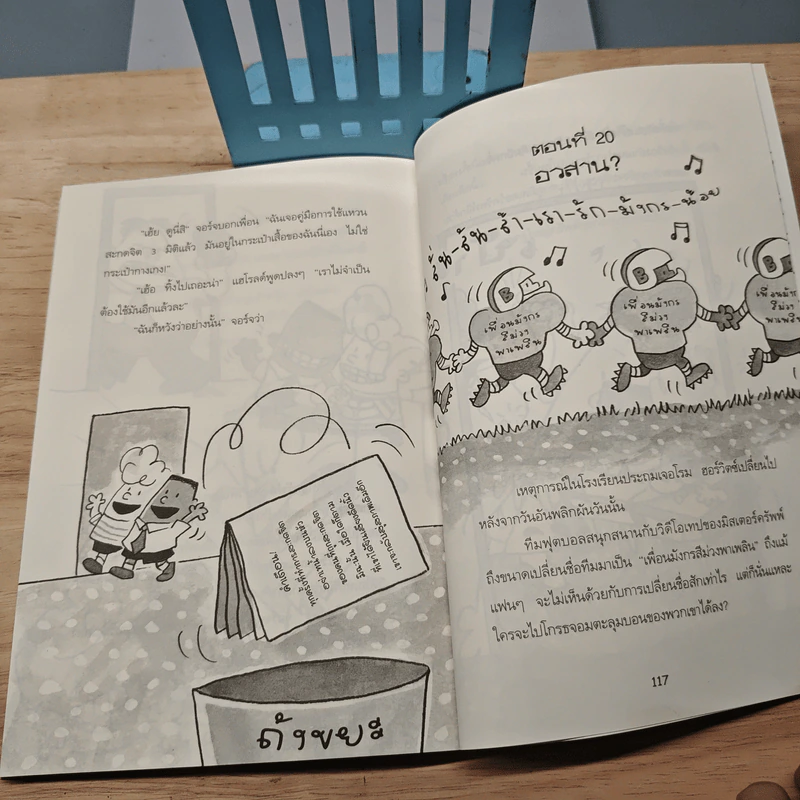 "เฮ้ย ดูนี่สิ" จอร์จบอกเพื่อน "ฉันเจอคู่มือการใช้แหวน
สะกดจิต 3 มิติแล้ว มันอยู่ในกระเป๋าเสื้อของฉันนี่เอง ไม่ใช่
กระเป๋ากางเกง!"
"เฮ้อ ทิ้งไปเถอะน่า" แฮโรลด์พูดปลงๆ "เราไม่จำเป็น
ต้องใช้มันอีกแล้วละ"
"ฉันก็หวังว่าอย่างนั้น" จอร์จว่า
คำเตือน!
ถังขยะ
ตอนที่ 20
อวสาน?
รื่น-รื่น-ร่ำ-เรา-รัก-มังกร-น้อย
B
B
B
เพื่อนมังกร
สีม่วง
พาเพลิน
เพื่อนมังกร
สีม่วง
พาเพลิน
เพื่อนมังกร
สีม่วง
พาเพลิน
เหตุการณ์ในโรงเรียนประถมเจอโรม ฮอร์วิตซ์เปลี่ยนไป
หลังจากวันอันพลิกผันวันนั้น
ทีมฟุตบอลสนุกสนานกับวิดีโอเทปของมิสเตอร์ครัพพ์
ถึงขนาดเปลี่ยนชื่อทีมมาเป็น "เพื่อนมังกรสีม่วงพาเพลิน" ถึงแม้
แฟนๆ จะไม่เห็นด้วยกับการเปลี่ยนชื่อสักเท่าไร แต่ก็นั่นแหละ
ใครจะไปโกรธจอมตะลุมบอนของพวกเขาได้ลง?
117